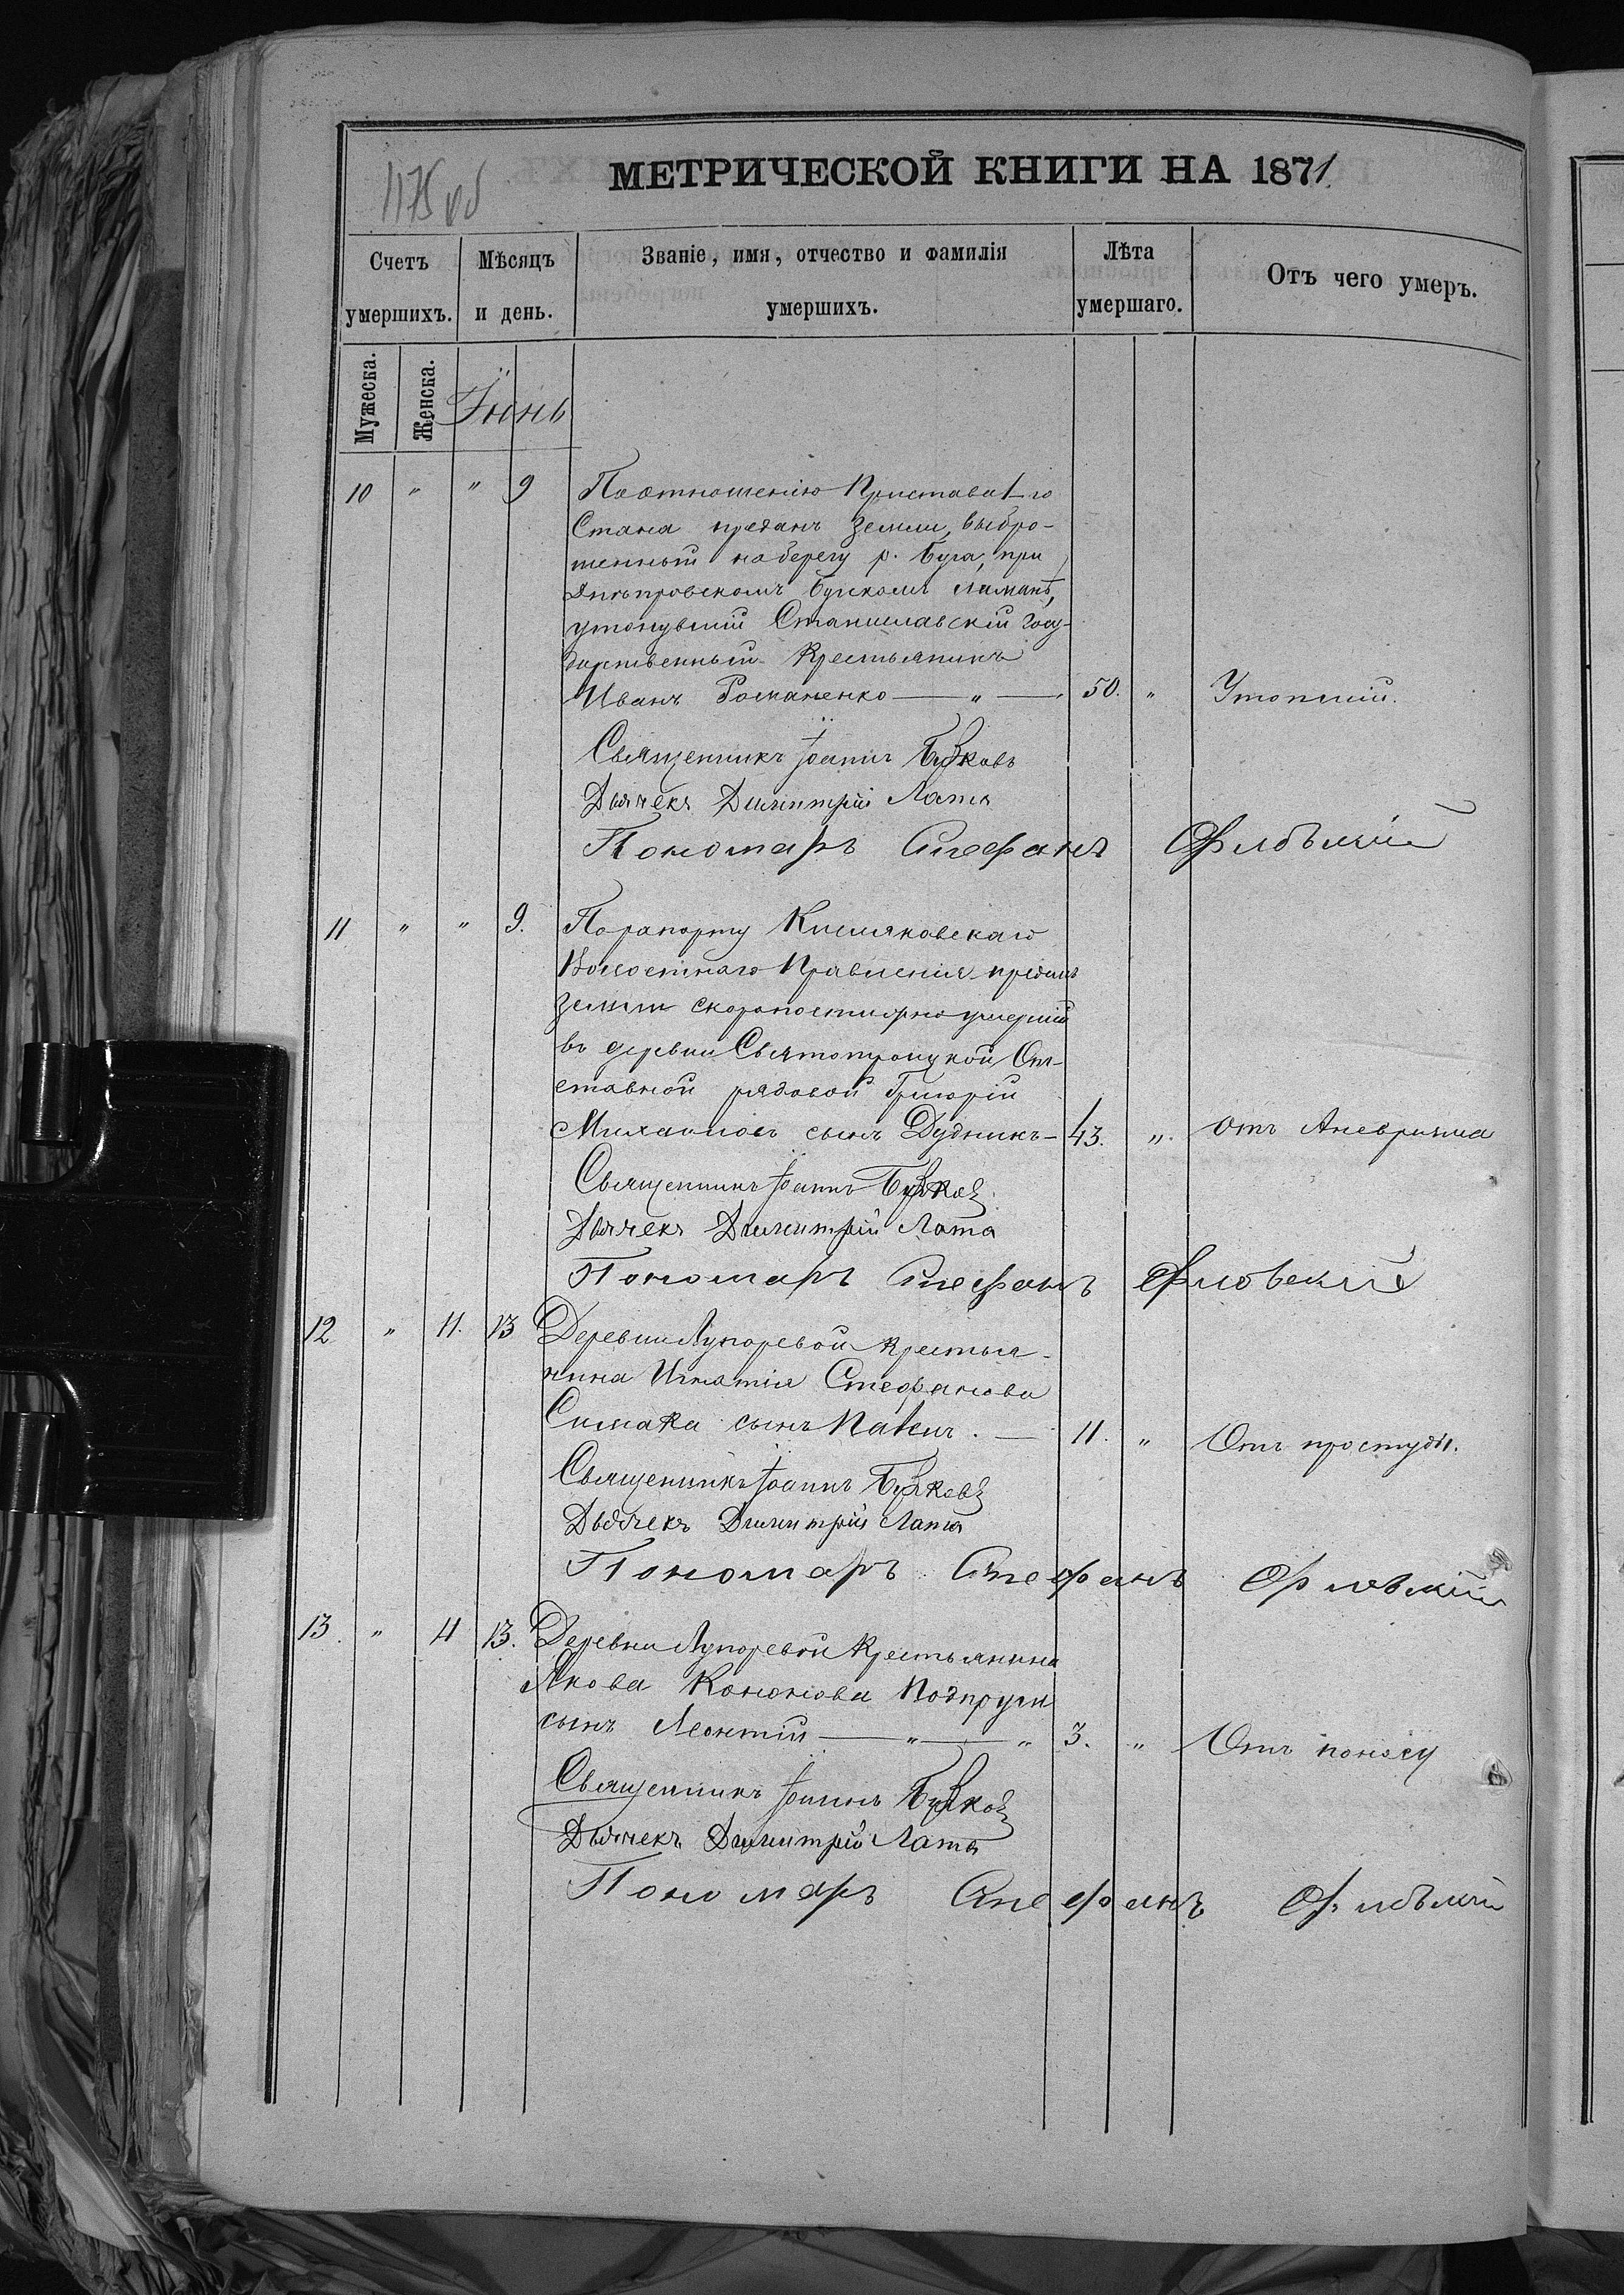 1175 об
МЕТРИЧЕСКОЙ КНИГИ НА 1871.
Счетъ умершихъ.
Мѣсяцъ и день.
Званіе, имя, отчество и фамилія умершихъ.
Лѣта умершаго.
Отъ чего умеръ.
Мужеска.
Женска.
Іюнь
10 " " 9 По отношенію Пристава 1-го
Стана преданъ земли, выбро-
шенный на берегу р. Буга, при
Днѣпровскомъ Бугскомъ лиманѣ,
утонувшій Станиславскій госу-
дарственный крестьянинъ
Иванъ Романенко — " — 50. " Утопшій.
Священникъ Іоаннъ
Дьячекъ Димитрій Лата
Пономарь Стефанъ Орловскій
11 " " 9. По рапорту Кисляковскаго
Волостнаго Правленія преданъ
земли скоропостижно умершій
въ деревни Святотроицкой От-
ставной рядовой Григорій
Михаиловъ сынъ Дудникъ — 43. " Отъ Аневризма
Священникъ Іоаннъ
Дьячекъ Димитрій Лата
Пономарь Стефанъ Орловскій
12 " 11. 13 Деревни Лупаревой крестья-
нина Игнатія Стефанова
Симака сынъ Павелъ. — 11. " Отъ простуды.
Священникъ Іоаннъ
Дьячекъ Димитрій Лата
Пономарь Стефанъ Орловскій
13. " 11 13. Деревни Лупаревой крестьянина
Якова Кононова Подпруги
сынъ Леонтій — " — " 3. " Отъ поносу
Священникъ Іоаннъ
Дьячекъ Димитрій Лата
Пономарь Стефанъ Орловскій